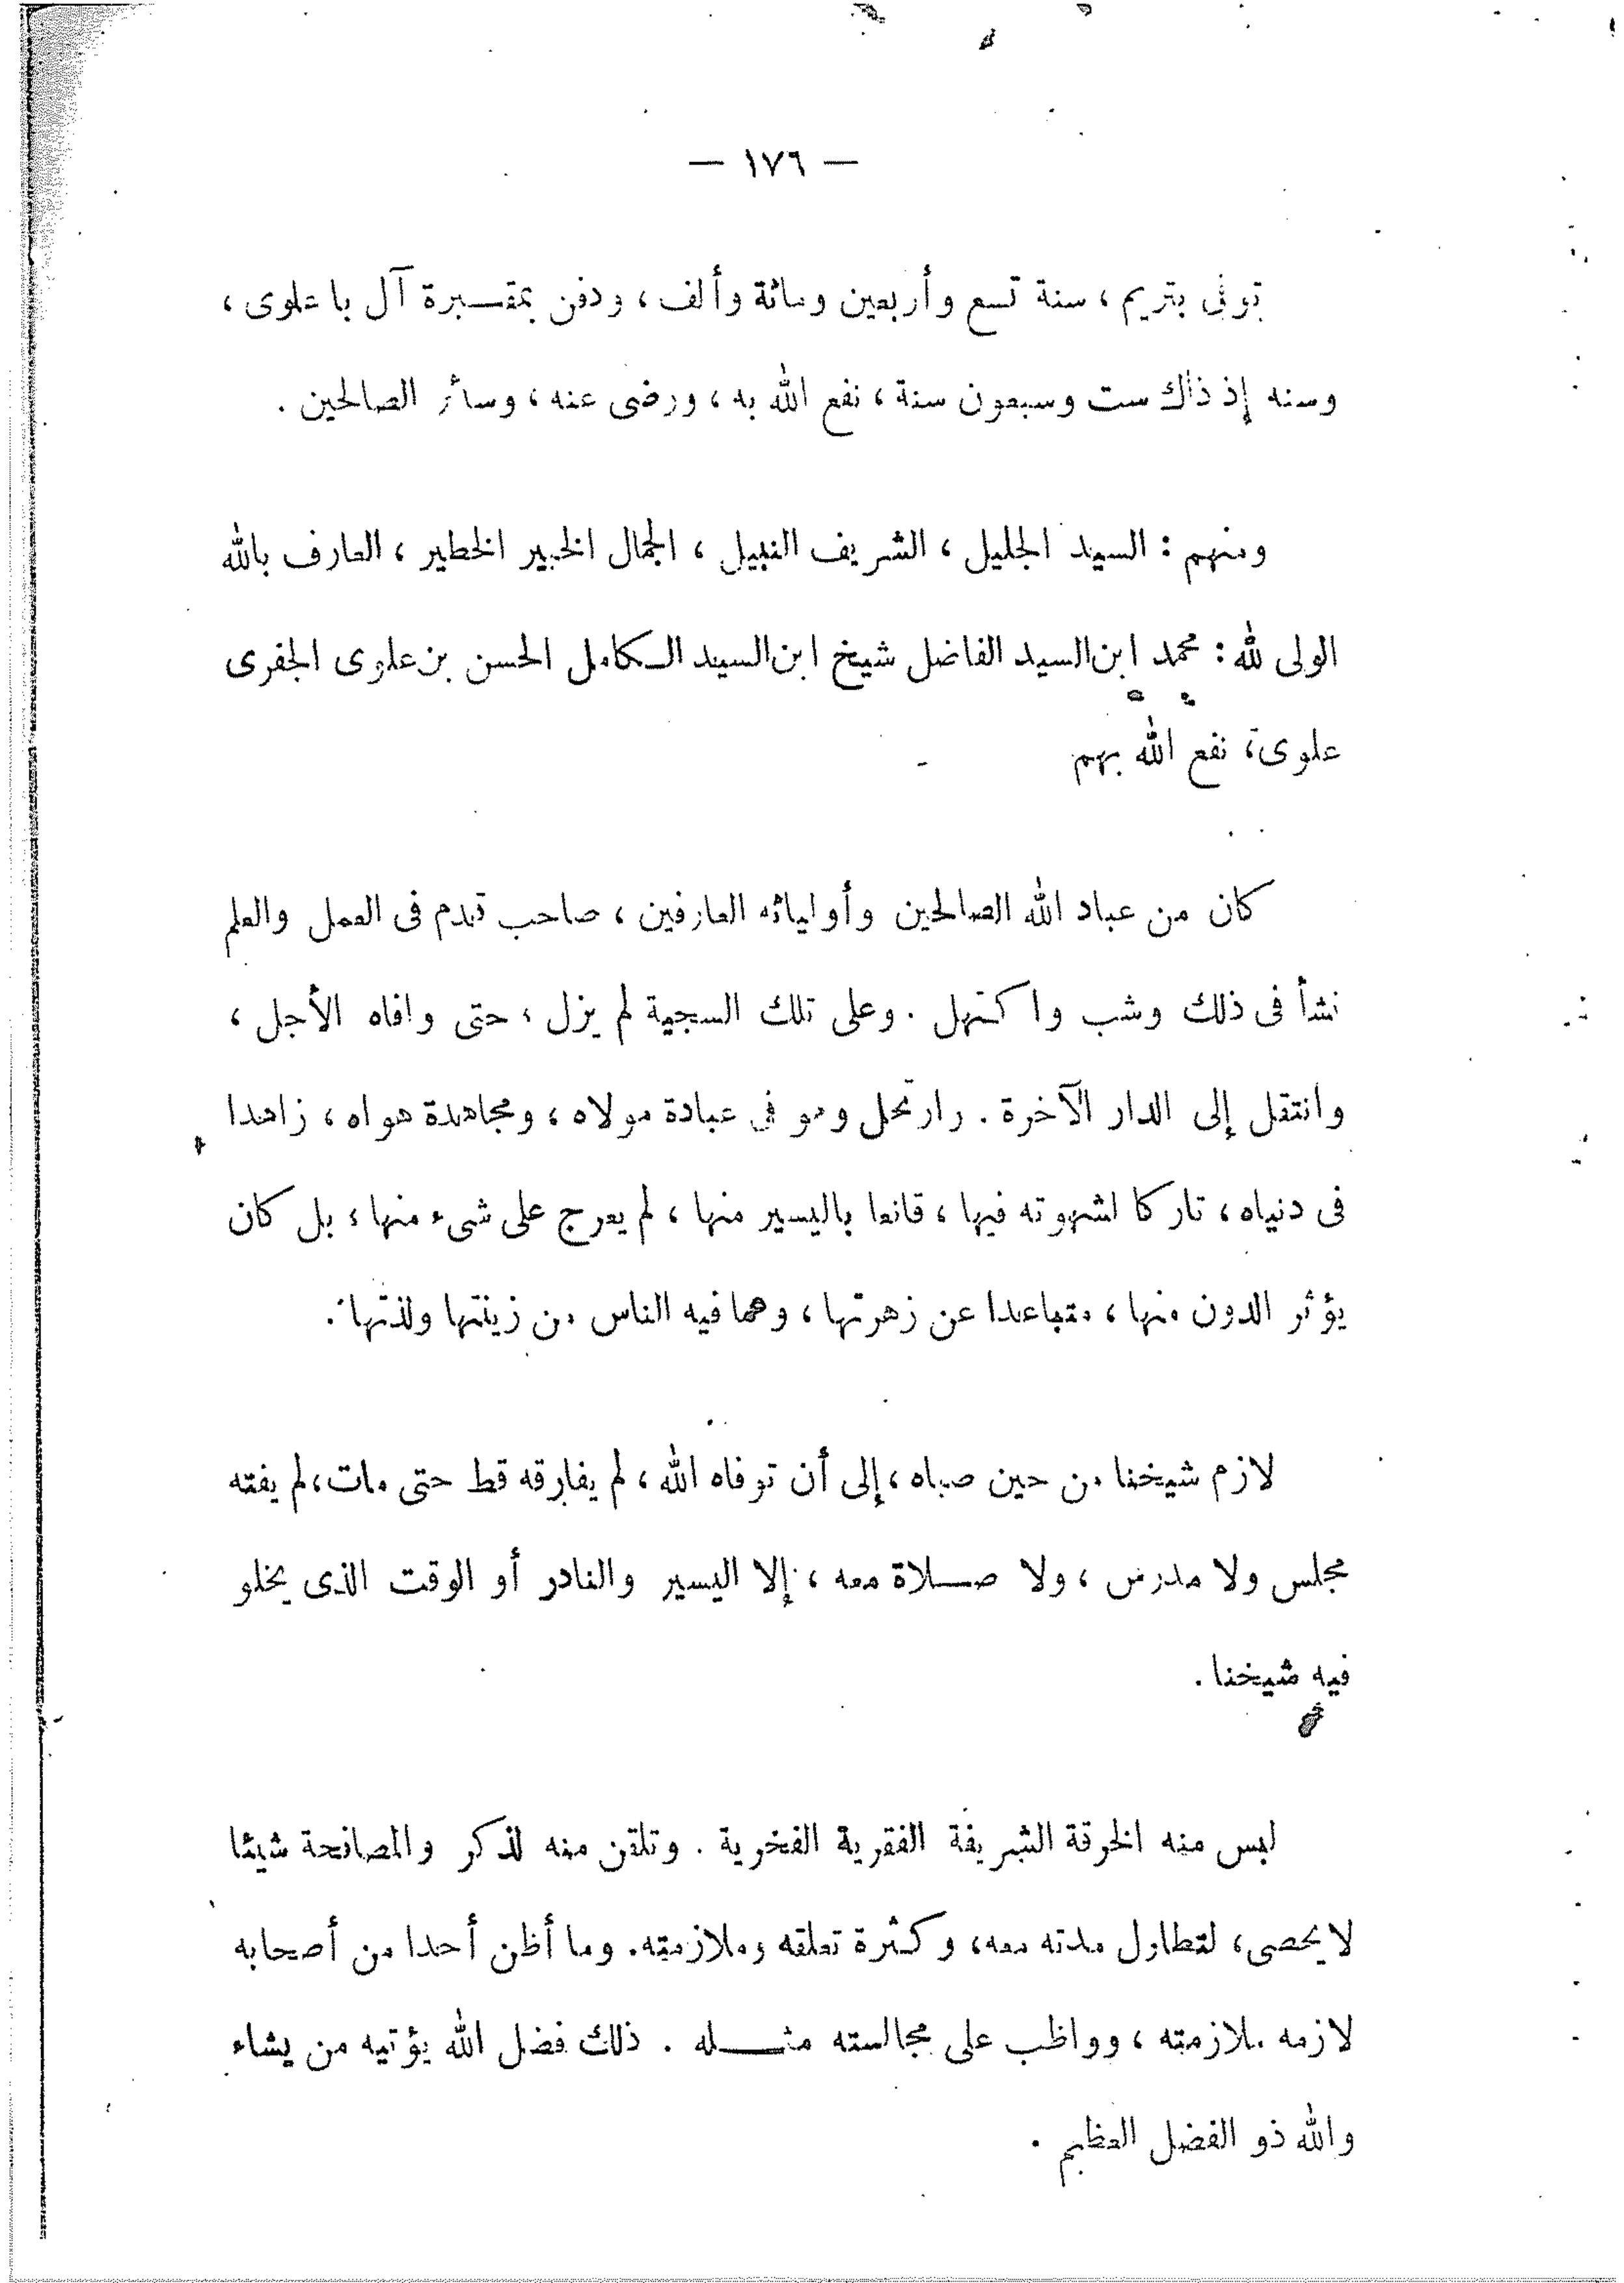 — ١٧٦ —
توفى بتريم ، سنة تسع وأربعين ومائة وألف ، ودفن بمقبرة آل باعلوى ،
وسنه إذ ذاك ست وسبعون سنة ، نفع الله به ، ورضى عنه ، وسائر الصالحين .
ومنهم : السيد الجليل ، الشريف النبيل ، الجمال الخبير الخطير ، العارف بالله
الولى لله : محمد ابن السيد الفاضل شيخ ابن السيد الكامل الحسن بن علوى الجفرى
علوى ، نفع الله بهم
كان من عباد الله الصالحين وأوليائه العارفين ، صاحب قدم فى العمل والعلم
نشأ فى ذلك وشب واكتهل . وعلى تلك السجية لم يزل ، حتى وافاه الأجل ،
وانتقل إلى الدار الآخرة . وارتحل وهو فى عبادة مولاه ، ومجاهدة هواه ، زاهدا
فى دنياه ، تاركا لشهوته فيها ، قانعا باليسير منها ، لم يعرج على شىء منها ، بل كان
يؤثر الدون منها ، متباعدا عن زهرتها ، وهما فيه الناس من زينتها ولذتها .
لازم شيخنا من حين صباه ، إلى أن توفاه الله ، لم يفارقه قط حتى مات ، لم يفته
مجلس ولا مدرس ، ولا صلاة معه ، إلا اليسير والنادر أو الوقت الذى يخلو
فيه شيخنا .
لبس منه الخرقة الشريفة الفقرية الفخرية . وتلقن منه لذكر والمصافحة شيئا
لا يحصى ، لتطاول مدته معه ، وكثرة تعلقه وملازمته . وما أظن أحدا من أصحابه
لازمه ملازمته ، وواظب على مجالسته مثله . ذلك فضل الله يؤتيه من يشاء
والله ذو الفضل العظيم .